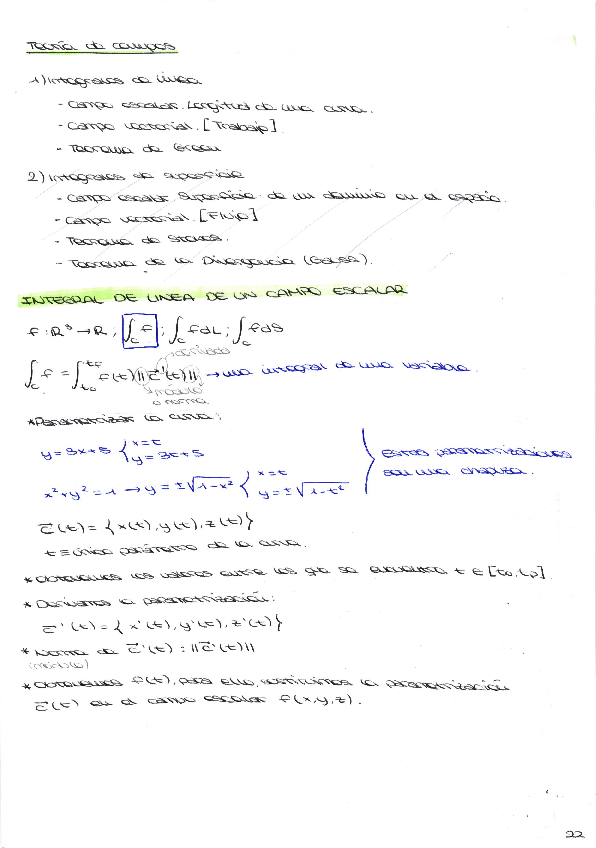 Teoría de campos
1) Integrales de línea
- Campo escalar. Longitud de una curva.
- Campo vectorial. [Trabajo]
- Teorema de Green
2) Integrales de superficie
- Campo escalar. Superficie de un dominio en el espacio.
- Campo vectorial. [Flujo]
- Teorema de Stokes.
- Teorema de la Divergencia (Gauss).
INTEGRAL DE LINEA DE UN CAMPO ESCALAR
f: R³ → R, ∫_C f ; ∫_C f dL ; ∫_C f dS
derivada
∫_C f = ∫_{t₀}^{t_F} f(t) ||c⃗'(t)|| → una integral de una variable.
módulo
o norma
*Parametrizar la curva:
y = 3x+5 { x = t
y = 3t+5
x²+y² = 1 → y = ±√1-x² { x = t
y = ±√1-t²
} Estas parametrizaciones
son una chapuza.
c⃗(t) = {x(t), y(t), z(t)}
t ≡ único parámetro de la curva.
* Obtenemos los valores entre los que se encuentra t ∈ [t₀, t_F].
* Derivamos la parametrización:
c⃗'(t) = {x'(t), y'(t), z'(t)}
* Norma de c⃗'(t) : ||c⃗'(t)||
(módulo)
* Obtenemos f(t), para ello, sustituimos la parametrización
c⃗(t) en el campo escalar f(x,y,z).
22